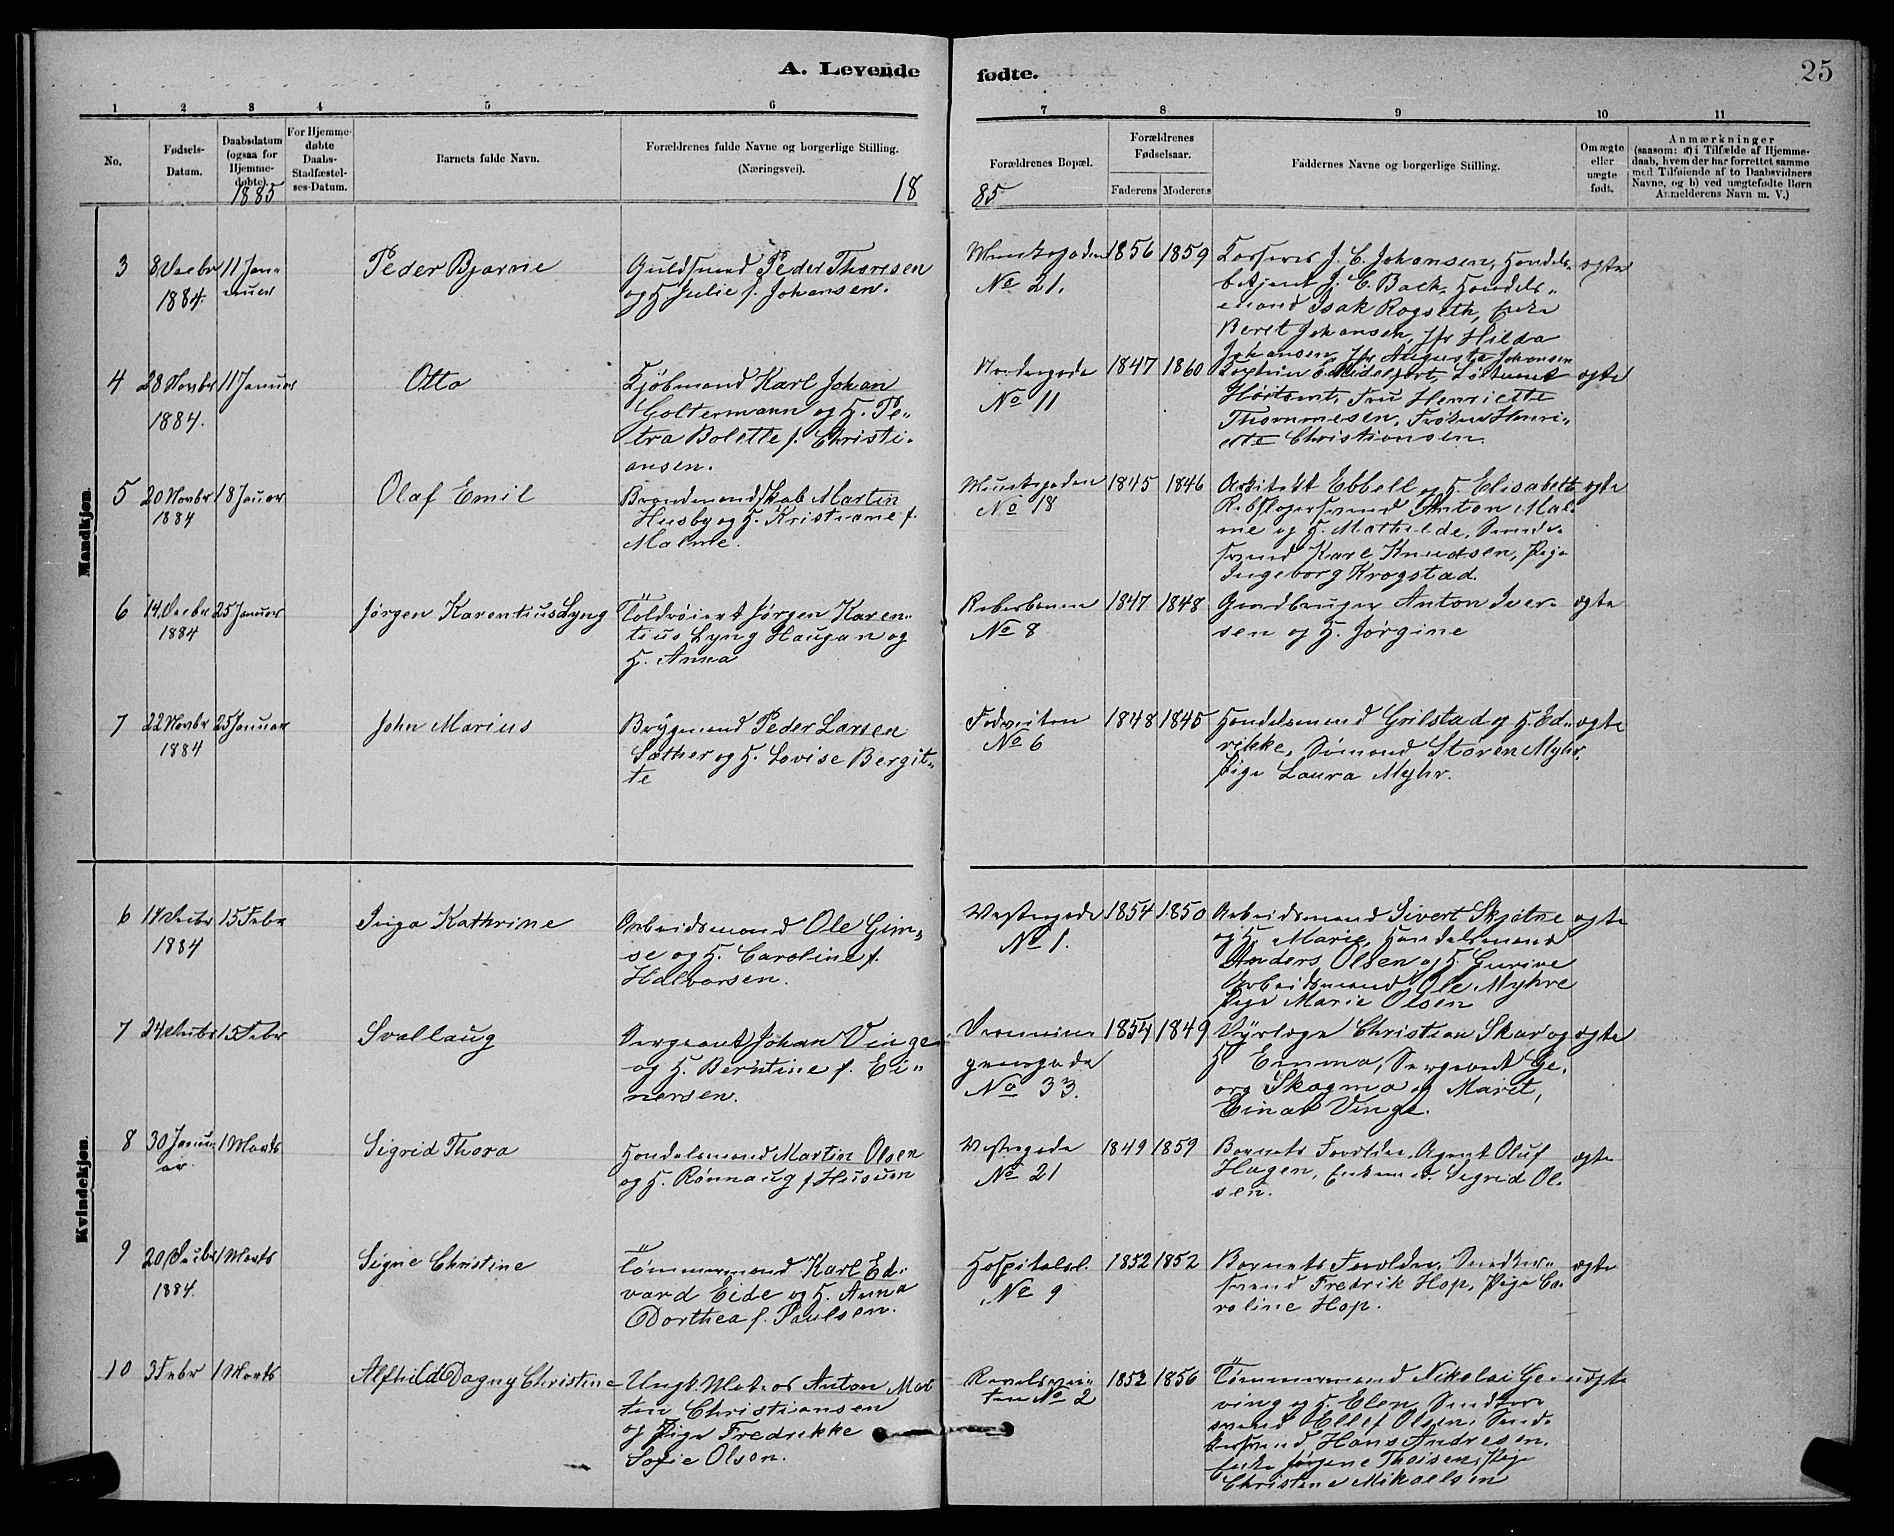 A. Levende fødte. 25
1 2 3 4 5 6 7 8 9 10 11
No.
Fødsels-
Datum.
Daabsdatum
(ogsaa for
Hjemme-
døbte).
1885
For Hjemme-
døbte
Daabs-
Stadfæstel-
ses-Datum.
Barnets fulde Navn.
Forældrenes fulde Navne og borgerlige Stilling.
(Næringsvei).
18
Forældrenes Bopæl.
85
Forældrenes
Fødselsaar.
Faderens Moderens
Faddernes Navne og borgerlige Stilling.
Om ægte
eller
uægte
født.
Anmærkninger
(saasom: a) i Tilfælde af Hjemme-
daab, hvem der har forrettet samme
med Tilføiende af to Daabsvidners
Navne, og b) ved uægtefødte Børn
Anmelderens Navn m. V.)
Mandkjøn.
3
8 Decbr
1884.
11 Jan-
nuar
Peder Bjarne
Guldsmed Peder Thoresen
og H. Julie f. Johansen.
Munkegaden
No 21.
1856 1859
J. C. Johansen, Handels-
betjent J. C. Bach, Handels-
mand Isak Rogseth, Enke
Beret Johansen, Jfr Hilda
Johansen, Jfr Augusta Johansen
ægte
4
28 Novbr
1884.
11 Januar
Otto
Kjøbmand Karl Johan
Goltermann og H. Pe-
tra Bolette f. Christi-
ansen.
Nordregade
No 11
1847 1860
Henriette
Thommesen, Frøken Henri-
ette Christiansen.
ægte
5
20 Novbr
1884
18 Januar
Olaf Emil
Brandmandskab Martin
Husby og H. Kristiane f.
Malme.
Munkegaden
No 18
1845 1846
Arkitekt Ebbell og H. Elisabeth
Rebslagersvend Anton Mal-
me og H. Mathilde, Smede-
svend Karl Knudsen, Pige
Ingeborg Krogstad.
ægte
6
14 Decbr
1884
25 Januar
Jørgen Karentius Lyng
Toldroiert Jørgen Karen-
tius Lyng Haugan og
H. Anna
No 8
1847 1848
Gaardbruger Anton Iver-
sen og H. Jørgine
ægte
7
22 Novbr
1884
25 Januar
John Marius
Brygmand Peder Larsen
Sæther og H. Lovise Bergit-
te
No 6
1848 1845
Handelsmand Grilstad og H. Ed-
rikke, Sømand Støren Myhr,
Pige Laura Myhr.
ægte
Kvindekjøn.
6
Decbr
1884
15 Febr
Inga Kathrine
Arbeidsmand Ole Gim-
se og H. Caroline f.
Halvorsen.
Vestregade
No 1.
1854 1850
Arbeidsmand Sivert Skjetne
og H. Marie, Handelsmand
Anders Olsen og H. Gurine
Arbeidsmand Ole Myhre
Pige Marie Olsen
ægte
7
24 Decbr
15 Febr
Svallaug
Sergeant Johan Vinge
og H. Berntine f. Ei-
nersen.
No 33.
1854 1849
Dyrlæge Christian Skar og
H. Emma, Sergeant Ge-
org Skagmo og Marit,
Einar Vinge.
ægte
8
30 Janu-
ar.
1 Marts
Sigrid Thora
Handelsmand Martin Olsen
og H. Rønnaug f. Husum
Vestregade
No 21
1849 1859
Barnets Forældre, Agent Oluf
Hagen, Enkem. Sigrid Ol-
sen.
ægte
9
20 Decbr
1884.
1 Marts
Signe Christine
Tømmermand Karl Ed-
vard Eide og H. Anna
Dorthea f. Paulsen.
Hospitalsl.
No 9
1852 1852
Barnets Forældre, Snedker-
svend Fredrik Hop, Pige Ca-
roline Hop.
ægte
10
3 Febr
1 Marts
Alfhild Dagny Christine
Ungk. Matros Anton Mar-
tin Christiansen
og Pige Fredrikke
Sofie Olsen.
No 2
1852 1856
Tømmermand Nikolai Ge-
ving og H. Elen, Snedker-
svend Ellef Olsen, Sned-
kersvend Hans Andresen,
Enke Jørgine Theisen, Pige
Christine Mikaelsen
uægte